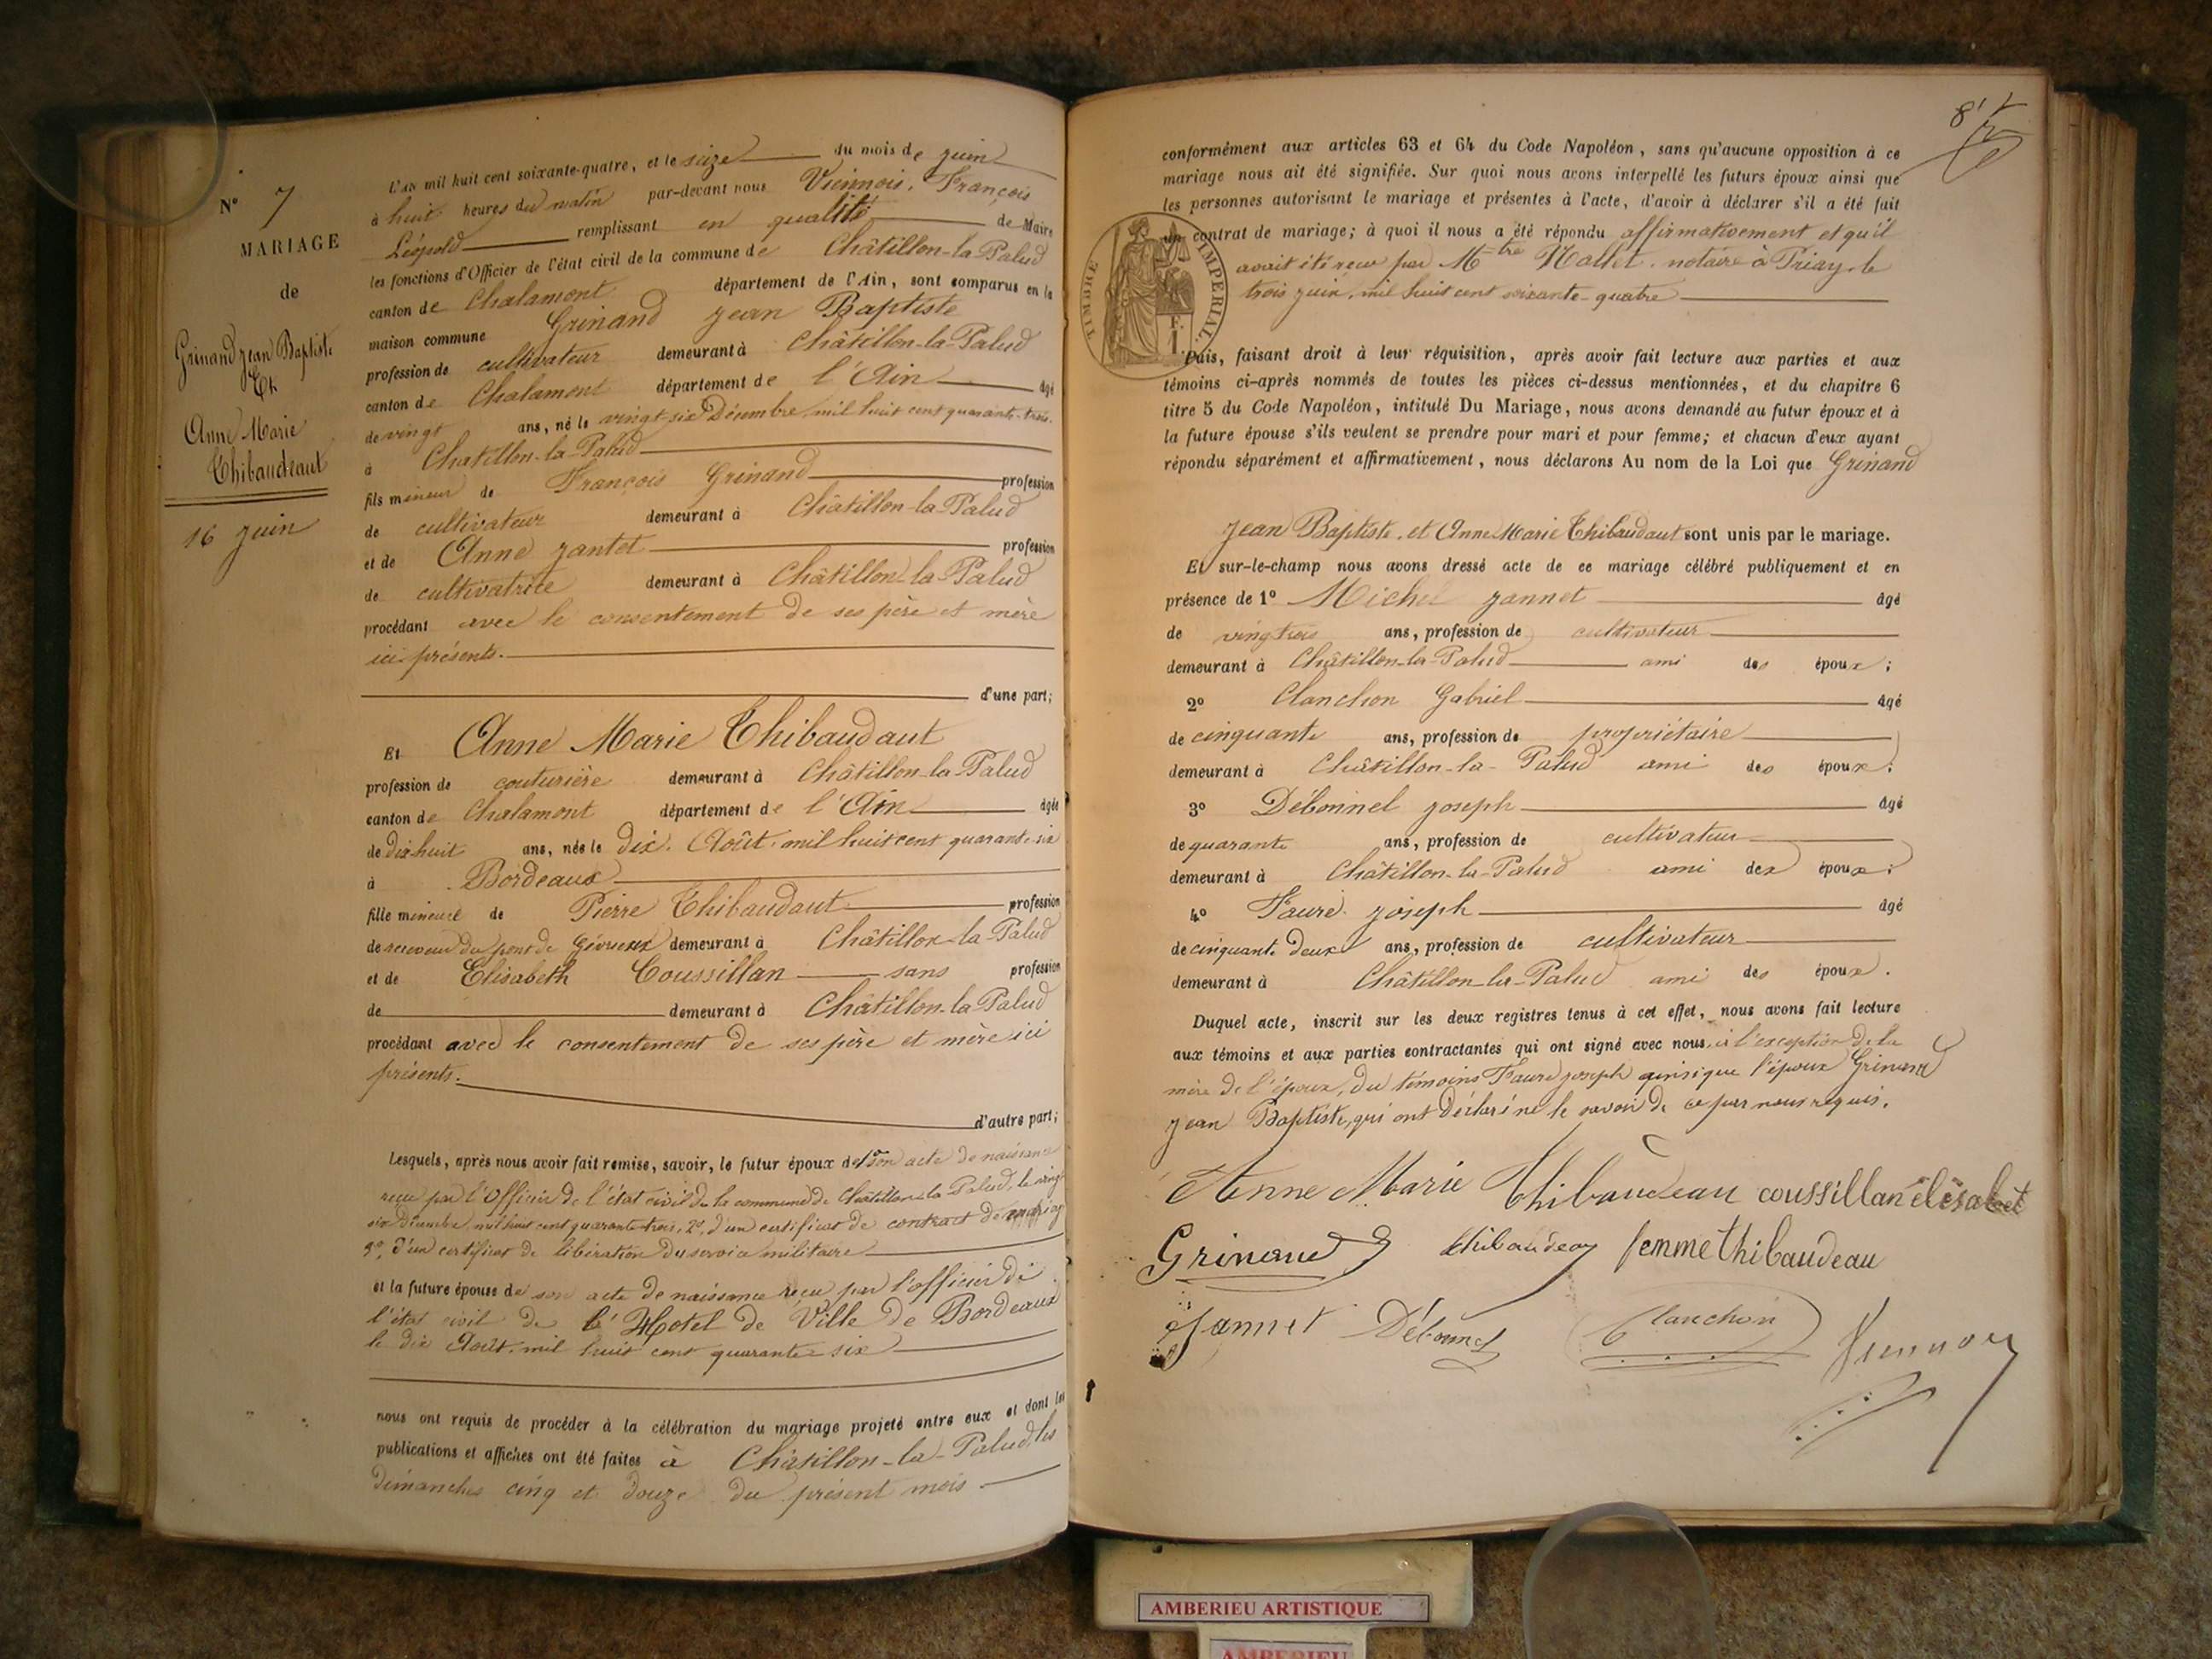 N° 7
MARIAGE
de
Grinand Jean Baptiste
Et
Anne Marie
Thibaudeaut
16 juin
L'an mil huit cent soixante-quatre, et le seize du mois de juin
à huit heures du matin par-devant nous Viennois, François
Léopold remplissant en qualité de Maire
les fonctions d'Officier de l'état civil de la commune de Châtillon-la-Palud
canton de Chalamont département de l'Ain, sont comparus en la
maison commune Grinand Jean Baptiste
profession de cultivateur demeurant à Châtillon-la-Palud
canton de Chalamont département de l'Ain âgé
de vingt ans, né le vingt six Décembre mil huit cent quarante-trois.
à Chatillon-la-Palud
fils mineur de François Grinand profession
de cultivateur demeurant à Châtillon-la-Palud
et de Anne Jantet profession
de cultivatrice demeurant à Châtillon-la-Palud
procédant avec le consentement de ses père et mère
ici présents.
d'une part;
Et Anne Marie Thibaudaut
profession de couturière demeurant à Châtillon-la-Palud
canton de Chalamont département de l'Ain âgée
de dix huit ans, née le dix Août mil huit cent quarante-six
à Bordeaux
fille mineure de Pierre Thibaudaut profession
de receveur du pont de Gévrieux demeurant à Châtillon-la-Palud
et de Elisabeth Coussillan sans profession
de demeurant à Châtillon-la-Palud
procédant avec le consentement de ses père et mère ici
présents.
d'autre part;
Lesquels, après nous avoir fait remise, savoir, le futur époux de 1° son acte de naissance
reçu par l'Officier de l'état civil de la commune de Châtillon-la-Palud, le vingt
six Décembre mil huit cent quarante-trois, 2° d'un certificat de contract de mariage
3° d'un certificat de libération du service militaire
et la future épouse de son acte de naissance reçu par l'officier de
l'état civil de l'Hotel de Ville de Bordeaux
le dix Août mil huit cent quarante six
nous ont requis de procéder à la célébration du mariage projeté entre eux et dont les
publications et affiches ont été faites à Châtillon-la-Palud, les
dimanches cinq et douze du présent mois
8
conformément aux articles 63 et 64 du Code Napoléon, sans qu'aucune opposition à ce
mariage nous ait été signifiée. Sur quoi nous avons interpellé les futurs époux ainsi que
les personnes autorisant le mariage et présentes à l'acte, d'avoir à déclarer s'il a été fait
un contrat de mariage; à quoi il nous a été répondu affirmativement et qu'il
avait été reçu par Mtre Mallet notaire à Priay le
trois juin, mil huit cent soixante-quatre
TIMBRE IMPERIAL
F. 1
Puis, faisant droit à leur réquisition, après avoir fait lecture aux parties et aux
témoins ci-après nommés de toutes les pièces ci-dessus mentionnées, et du chapitre 6
titre 5 du Code Napoléon, intitulé Du Mariage, nous avons demandé au futur époux et à
la future épouse s'ils veulent se prendre pour mari et pour femme; et chacun d'eux ayant
répondu séparément et affirmativement, nous déclarons Au nom de la Loi que Grinand
Jean Baptiste, et Anne Marie Thibaudaut sont unis par le mariage.
Et sur-le-champ nous avons dressé acte de ce mariage célébré publiquement et en
présence de 1° Michel Jannet âgé
de vingtrois ans, profession de cultivateur
demeurant à Châtillon-la-Palud ami des époux;
2° Clanchon Gabriel âgé
de cinquante ans, profession de propriétaire
demeurant à Châtillon-la-Palud ami des époux;
3° Débonnel Joseph âgé
de quarante ans, profession de cultivateur
demeurant à Châtillon-la-Palud ami des époux;
4° Faure Joseph âgé
de cinquante deux ans, profession de cultivateur
demeurant à Châtillon-la-Palud ami des époux.
Duquel acte, inscrit sur les deux registres tenus à cet effet, nous avons fait lecture
aux témoins et aux parties contractantes qui ont signé avec nous, à l'exception de la
mère de l'époux, du témoins Faure Joseph ainsi que l'époux Grinand
Jean Baptiste, qui ont déclaré ne le savoir de ce par nous requis.
Anne Marie Thibaudeau coussillan élésabet
Grinand thibaudeau femme thibaudeau
Jannet Débonnel Clanchon Viennois
AMBERIEU ARTISTIQUE
AMBERIEU